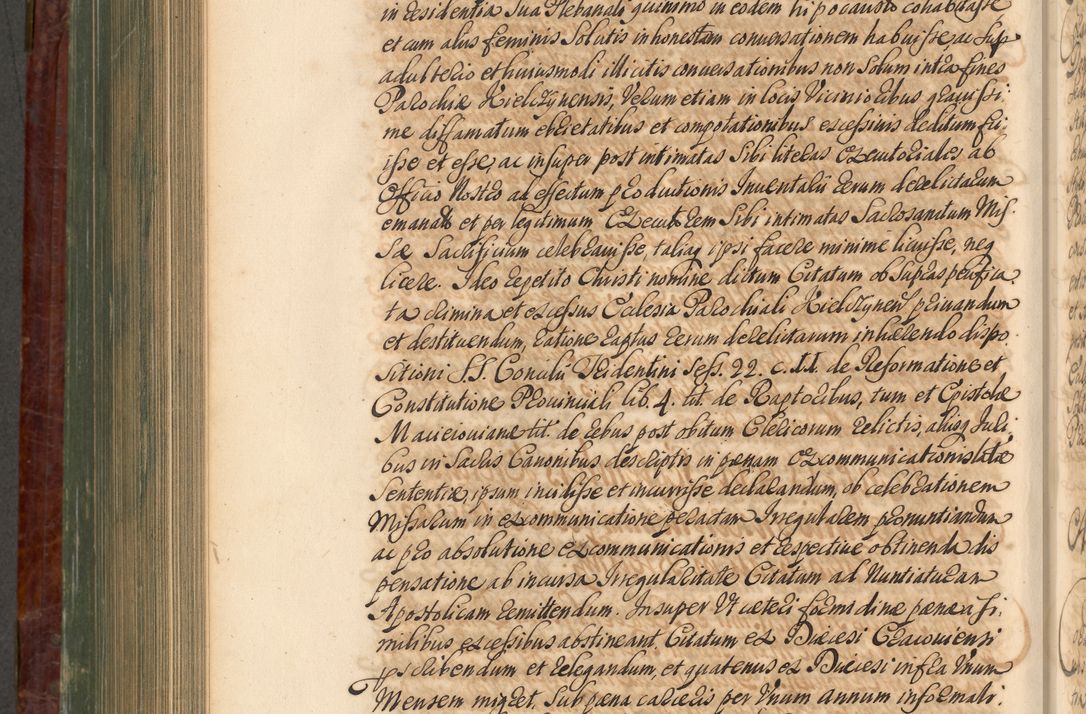 in Residentia Sua Plebanali quinimo in eodem hipocausto cohabitasse
et cum aliis feminis Solutis inhonestam conversationem habuisse, ac sup
adulterio et huiusmodi illicitis conversationibus non Solum intra fines
Parochiæ Kielczynensis, Verum etiam in locis Vicinioribus gravissi
me diffamatum ebrietatibus et compotationibus excessivis deditum fu
isse et esse, ac insuper post intimatas Sibi literas Executoriales ab
Officio Nostro ad effectum productionis Inventarii rerum derelictarum
emanatas et per legitimum Executorem Sibi intimatas Sacrosanctum Mis
sæ Sacrificium celebravisse, taliaq ipsi facere minime licuisse, neq
licere. Ideo repetito Christi nomine dictum Citatum ob supraspecifica
ta crimina et excessus Ecclesia Parochiali Kielczynen privandum
et destituendum, ratione raptus rerum derelictarum inhærendo dispo
sitioni S.S. Concilii Tridentini Sess. 22. c. II. de Reformatione et
Constitutione Provinciali lib. 4. tit de Raptoribus, tum et Epistolæ
Macieiovianæ tit. de rebus post obitum Clericorum relictis, aliisq Juri
bus in Sacris Canonibus descriptis in pœnam excommunicationis latæ
Sententiæ, ipsam incidisse et incurrisse declarandum, ob celebrationem
Missarum in excommunicatione peractam Irregularem pronuntiandum
ac pro absolutione excommunicationis et respective obtinenda dis
pensatione ab incursa Irregularitate Citatum ad Nuntiaturam
Apostolicam remittendum. Insuper Ut cæteri formidine pænæ a si
milibus excessibus abstineant, Citatum ex Diæcesi Cracoviensi
pscribendum et relegandum, et quatenus ex Diæcesi infra Unum
Mensem migret, Sub pæna carceris per Unum annum informali